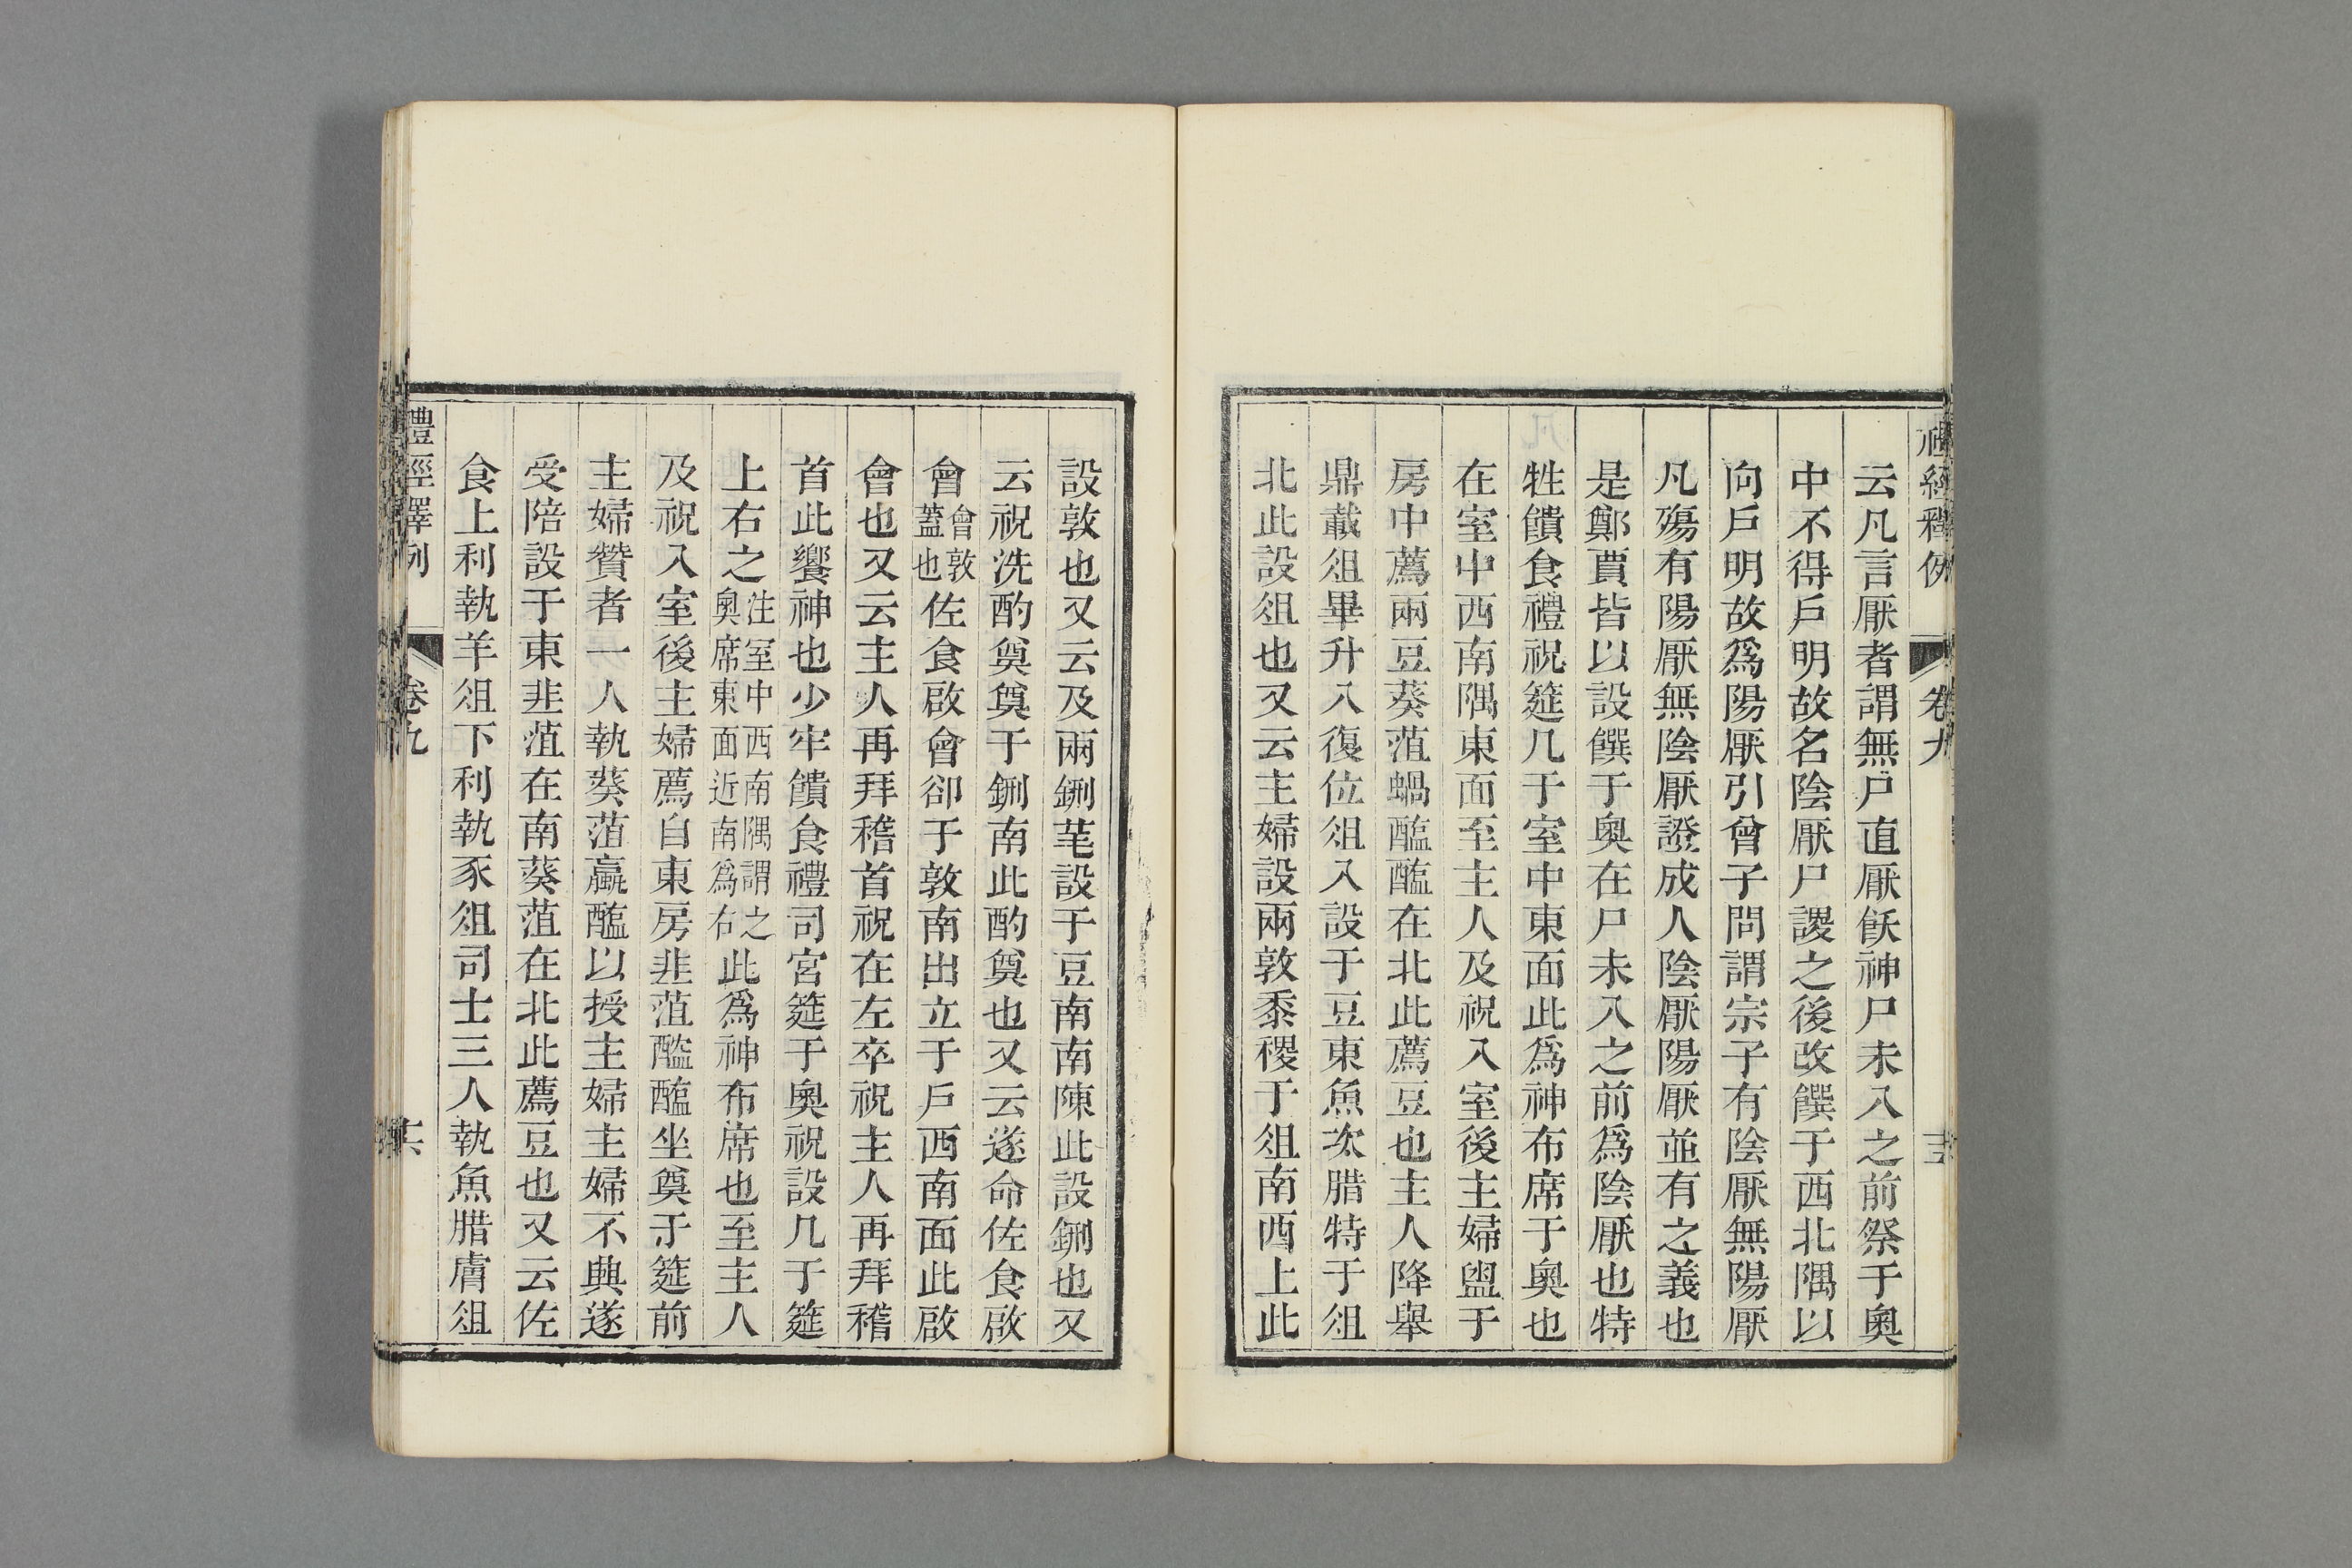 禮經釋例
卷九
云凡言厭者謂無尸直厭飫神尸未入之前祭于奧
中不得戶明故名陰厭尸謖之後改饌于西北隅以
向戶明故爲陽厭引曾子問謂宗子有陰厭無陽厭
凡殤有陽厭無陰厭證成人陰厭陽厭並有之義也
是鄭賈皆以設饌于奧在尸未入之前爲陰厭也特
牲饋食禮祝筵几于室中東面此爲神布席于奧也
在室中中西南隅東面至主人及祝入室後主婦盥于
房中薦兩豆葵菹蝸醢醢在北此薦豆也主人降舉
鼎載俎畢升入復位俎入設于豆東魚次腊特于俎
北此設俎也又云主婦設兩敦黍稷于俎南西上此
設敦也又云及兩鉶芼設于豆南南陳此設鉶也又
云祝洗酌奠奠于鉶南此酌奠也又云遂命佐食啟
會會敦蓋也佐食啟會卻于敦南出立于戶西南面此啟
會也又云主人再拜稽首祝在左卒祝主人再拜稽
首此饗神也少牢饋食禮司宮筵于奧祝設几于筵
上右之注室中西南隅謂之奧席東面近南爲右此爲神布席也至主人
及祝入室後主婦薦自東房韭菹醓醢坐奠于筵前
主婦贊者一人執葵菹蠃醢以授主婦主婦不興遂
受陪設于東韭菹在南葵菹在北此薦豆也又云佐
食上利執羊俎下利執豕俎司士三人執魚腊膚俎
禮經釋例
卷九